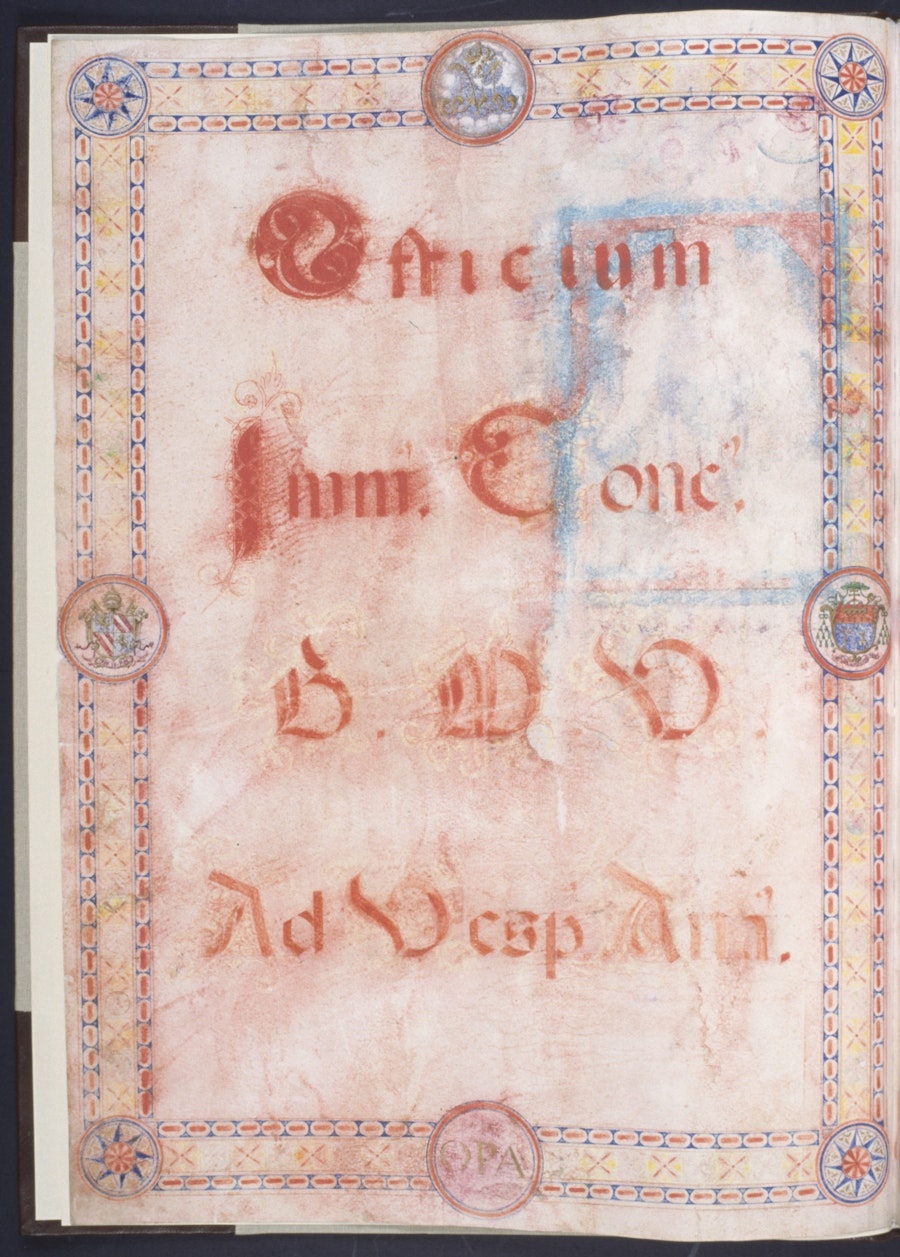 Officium
Imm'. Conc'.
B. M. V.
Ad Vesp. Ana'.
OPA